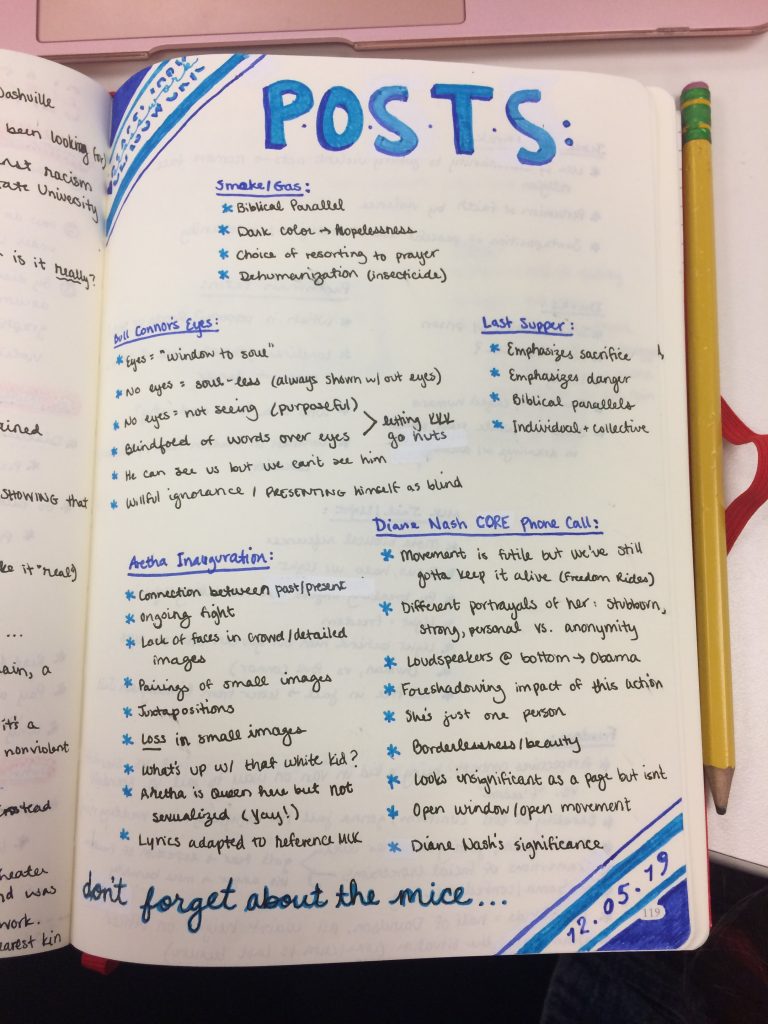 Nashville
been looking for
nst racism
ate University
is it really?
ained
SHOWING that
ke it "real"
...
ain, a
it's a
nonviolent
instead
heater
nd was
work.
earest kin
CLASS: INDY
homework
GROUNDWORK
P.O.S.T.S:
Smoke/Gas:
* Biblical Parallel
* Dark color → Hopelessness
* Choice of resorting to prayer
* Dehumanization (insecticide)
Bull Connor's Eyes:
* Eyes = "window to soul"
* No eyes = soul-less (always shown w/out eyes)
* No eyes = not seeing (purposeful)
* Blindfold of words over eyes > letting KKK go nuts
* He can see us but we can't see him
* Willful ignorance / PRESENTING himself as blind
Last Supper:
* Emphasizes sacrifice
* Emphasizes danger
* Biblical parallels
* Individual + collective
Aretha Inauguration:
* Connection between past/present
* Ongoing fight
* Lack of faces in crowd/detailed
images
* Pairings of small images
* Juxtapositions
* Loss in small images
* What's up w/ that white kid?
* Aretha is Queen here but not
sexualized (yay!)
* Lyrics adapted to reference MLK
Diana Nash CORE Phone Call:
* Movement is futile but we've still
gotta keep it alive (Freedom Rides)
* Different portrayals of her: stubborn,
strong, personal vs. anonymity
* Loudspeakers @ bottom → Obama
* Foreshadowing impact of this action
* She's just one person
* Borderlessness/beauty
* Looks insignificant as a page but isnt
* Open window/open movement
* Diane Nash's significance
don't forget about the mice...
12.05.19
119